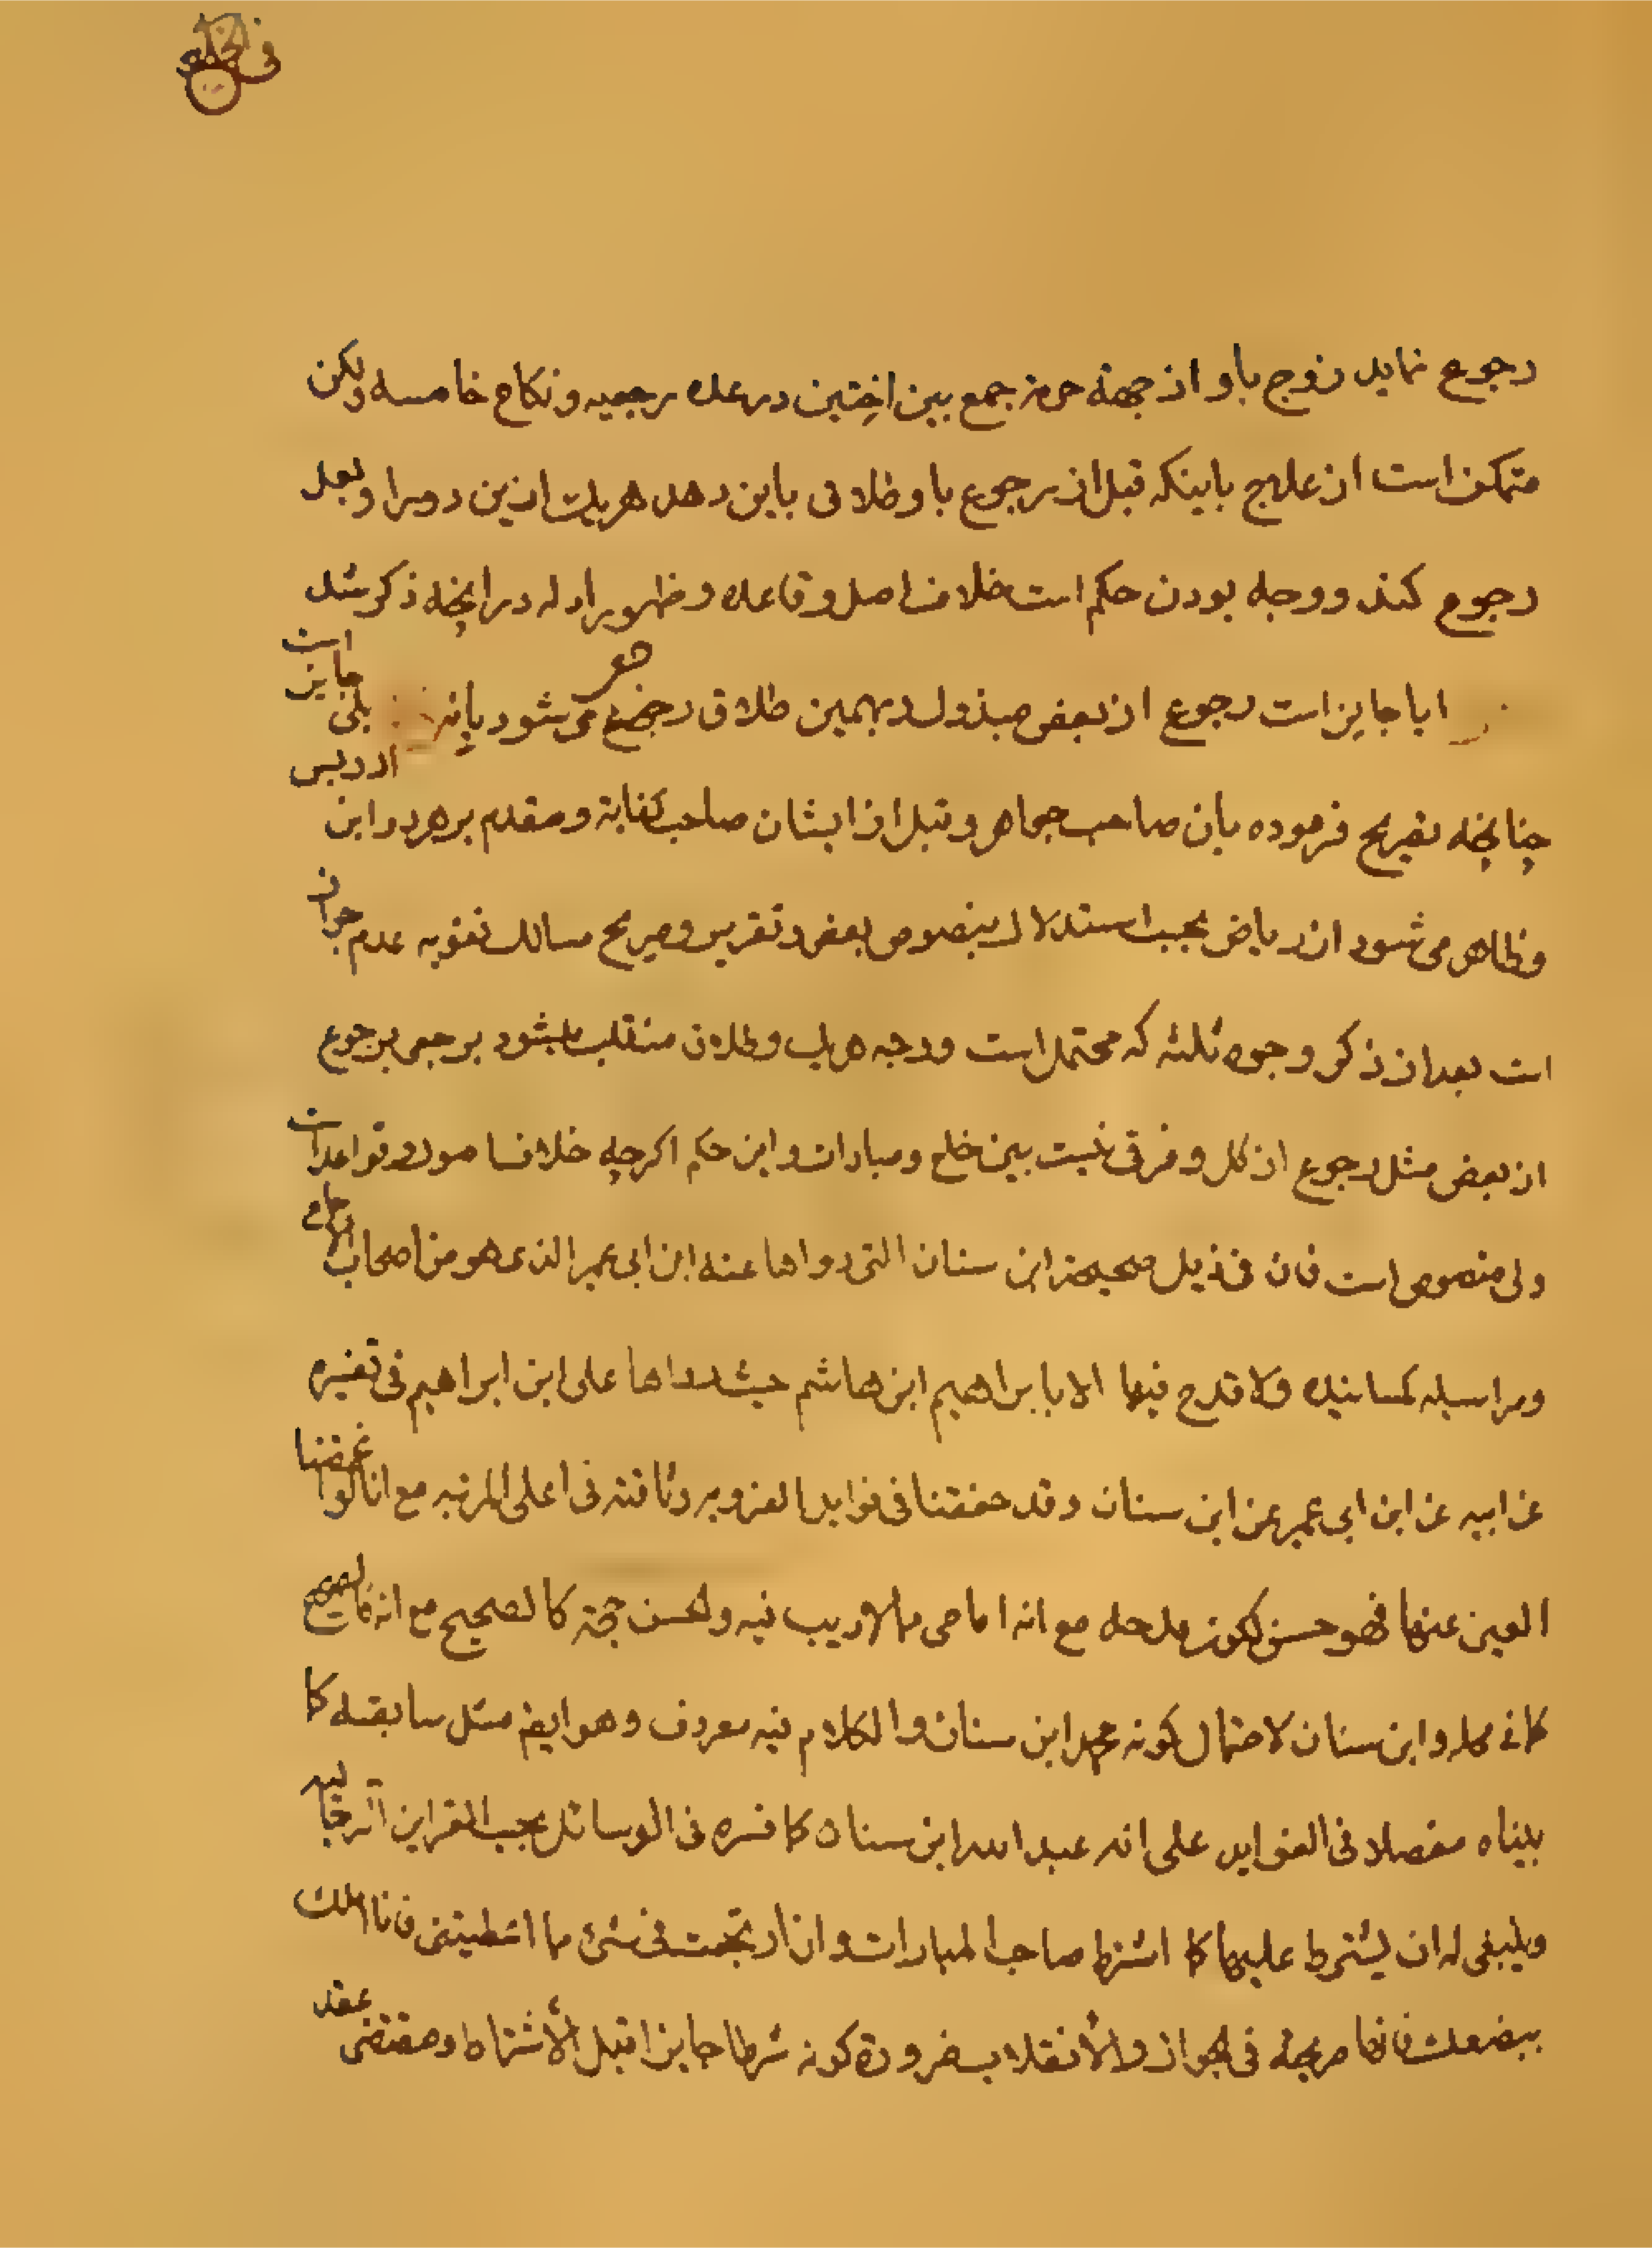 فی الخلع
رجوع نماید زوج باو از جهة حرمة جمع بین اختین در عده رجعیه و نکاح خامسه ولکن
متمکن است از علاج باینکه قبل از رجوع باو طلاقی باین دهد هریك از این دو را و بعد
رجوع کند و وجه بودن حکم است خلاف اصل و قاعده و ظهور ادله در انچه ذکر شد
ایا جایز است رجوع از بعض مبذول و بهمین طلاق رجعی می شود یا نه بلی جایز است
چنانچه تصریح فرموده بان صاحب جواهر و قبل از ایشان صاحب کفایة و مقدم بر هر دو ابن ادریس
و ظاهر می شود از ریاض بحسب استدلال بنصوص بعض و تقریر و صریح مسالك تفویه عدم جواز
است بعد از ذکر وجوه ثلثه که محتمل است و وجه هریك و طلاق منقلب میشود برجعی برجوع
از بعض مثل رجوع از کل و فرقی نیست بین خلع و مبارات و این حکم اکرچه خلاف اصول و قواعد است
ولی منصوص است فان فی ذیل صحیحة ابن سنان التی رواها عنه ابن ابی عمیر الذی هو من اصحاب الاجماع
و مراسیله کمسانیده و لا قدح فیها الا بابراهیم ابن هاشم حیث رواها علی ابن ابراهیم فی تفسیره
عن ابیه عن ابن ابی عمیر عن ابن سنان و قد حققنا فی فواید الغرویه وثاقته فی اعلی المرتبه مع انا لو اغمضنا
العین عنها فهو حسن لکونه مدحه مع انه امامی مما لا ریب فیه و الحسن حجة کالصحیح مع انه کالصحیح
کما فی محله و ابن سنان لاحتمال کونه محمد ابن سنان و الکلام فیه معروف و هو ایضا مثل سابقه کما
بیناه مفصلا فی الفواید علی انه عبد الله ابن سنان کما فسره فی الوسائل بحسب القراین الرجالیه
و ینبغی له ان یشترط علیها کما اشترط صاحب المبارات و ان ارتجعت فی شیء مما اعطیتنی فانا املك
ببضعك فانها صریحة فی الجواز و الأنقلاب ضرورة کونه شرطا جایزا قبل الأشتراط و مقتضی عقد